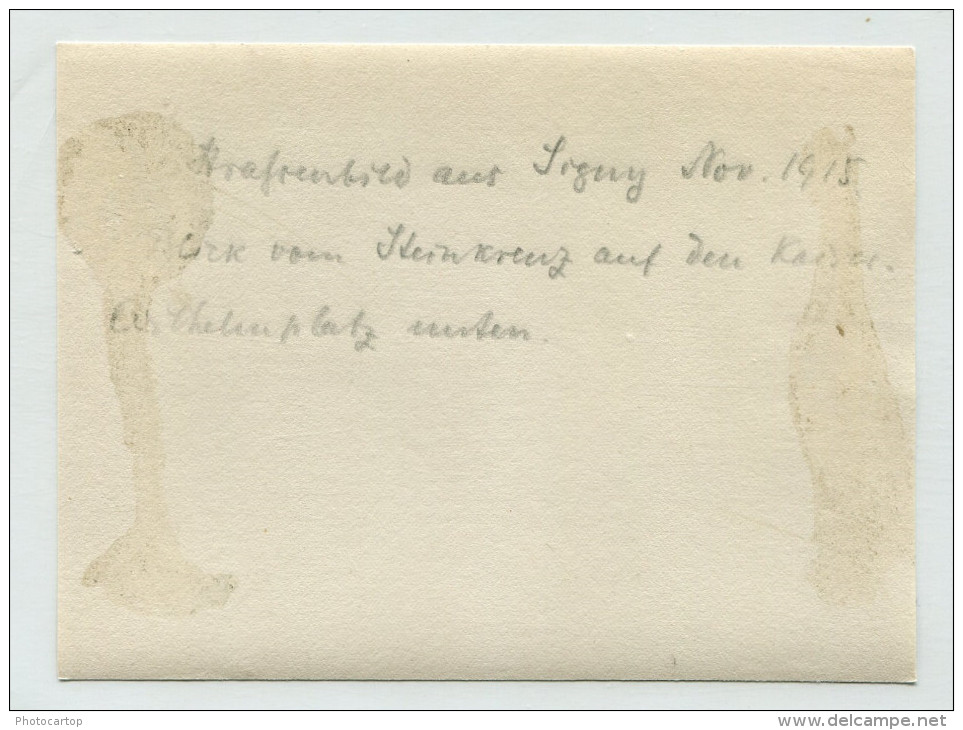 Strassenbild aus Signy Nov. 1915
Blick vom Steinkreuz auf den Kaiser-
Wilhelmplatz unten.
Photocartop
www.delcampe.net